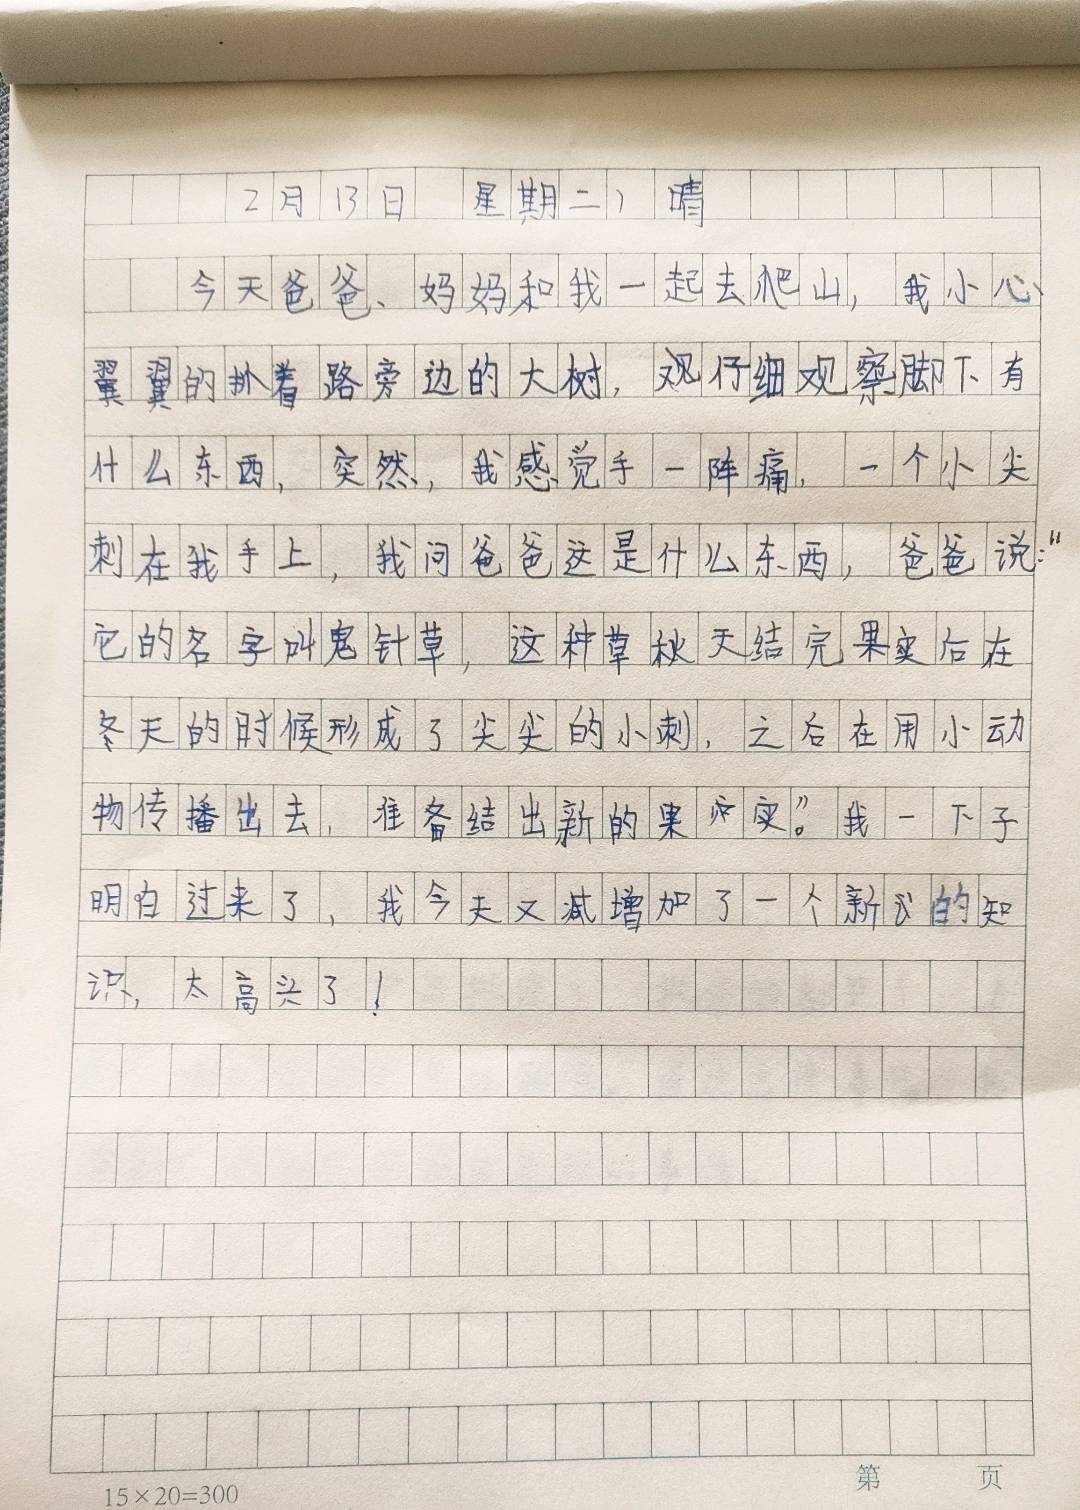 2月13日 星期二 晴
今天爸爸、妈妈和我一起去爬山，我小心
翼翼的扒着路旁边的大树，观仔细观察脚下有
什么东西，突然，我感觉手一阵痛，一个小尖
刺在我手上，我问爸爸这是什么东西，爸爸说：“
它的名字叫鬼针草，这种草秋天结完果实后在
冬天的时候形成了尖尖的小刺，之后在用小动
物传播出去，准备结出新的果实”。我一下子
明白过来了，我今天又减增加了一个新的知
识，太高兴了！
15×20=300
第 页